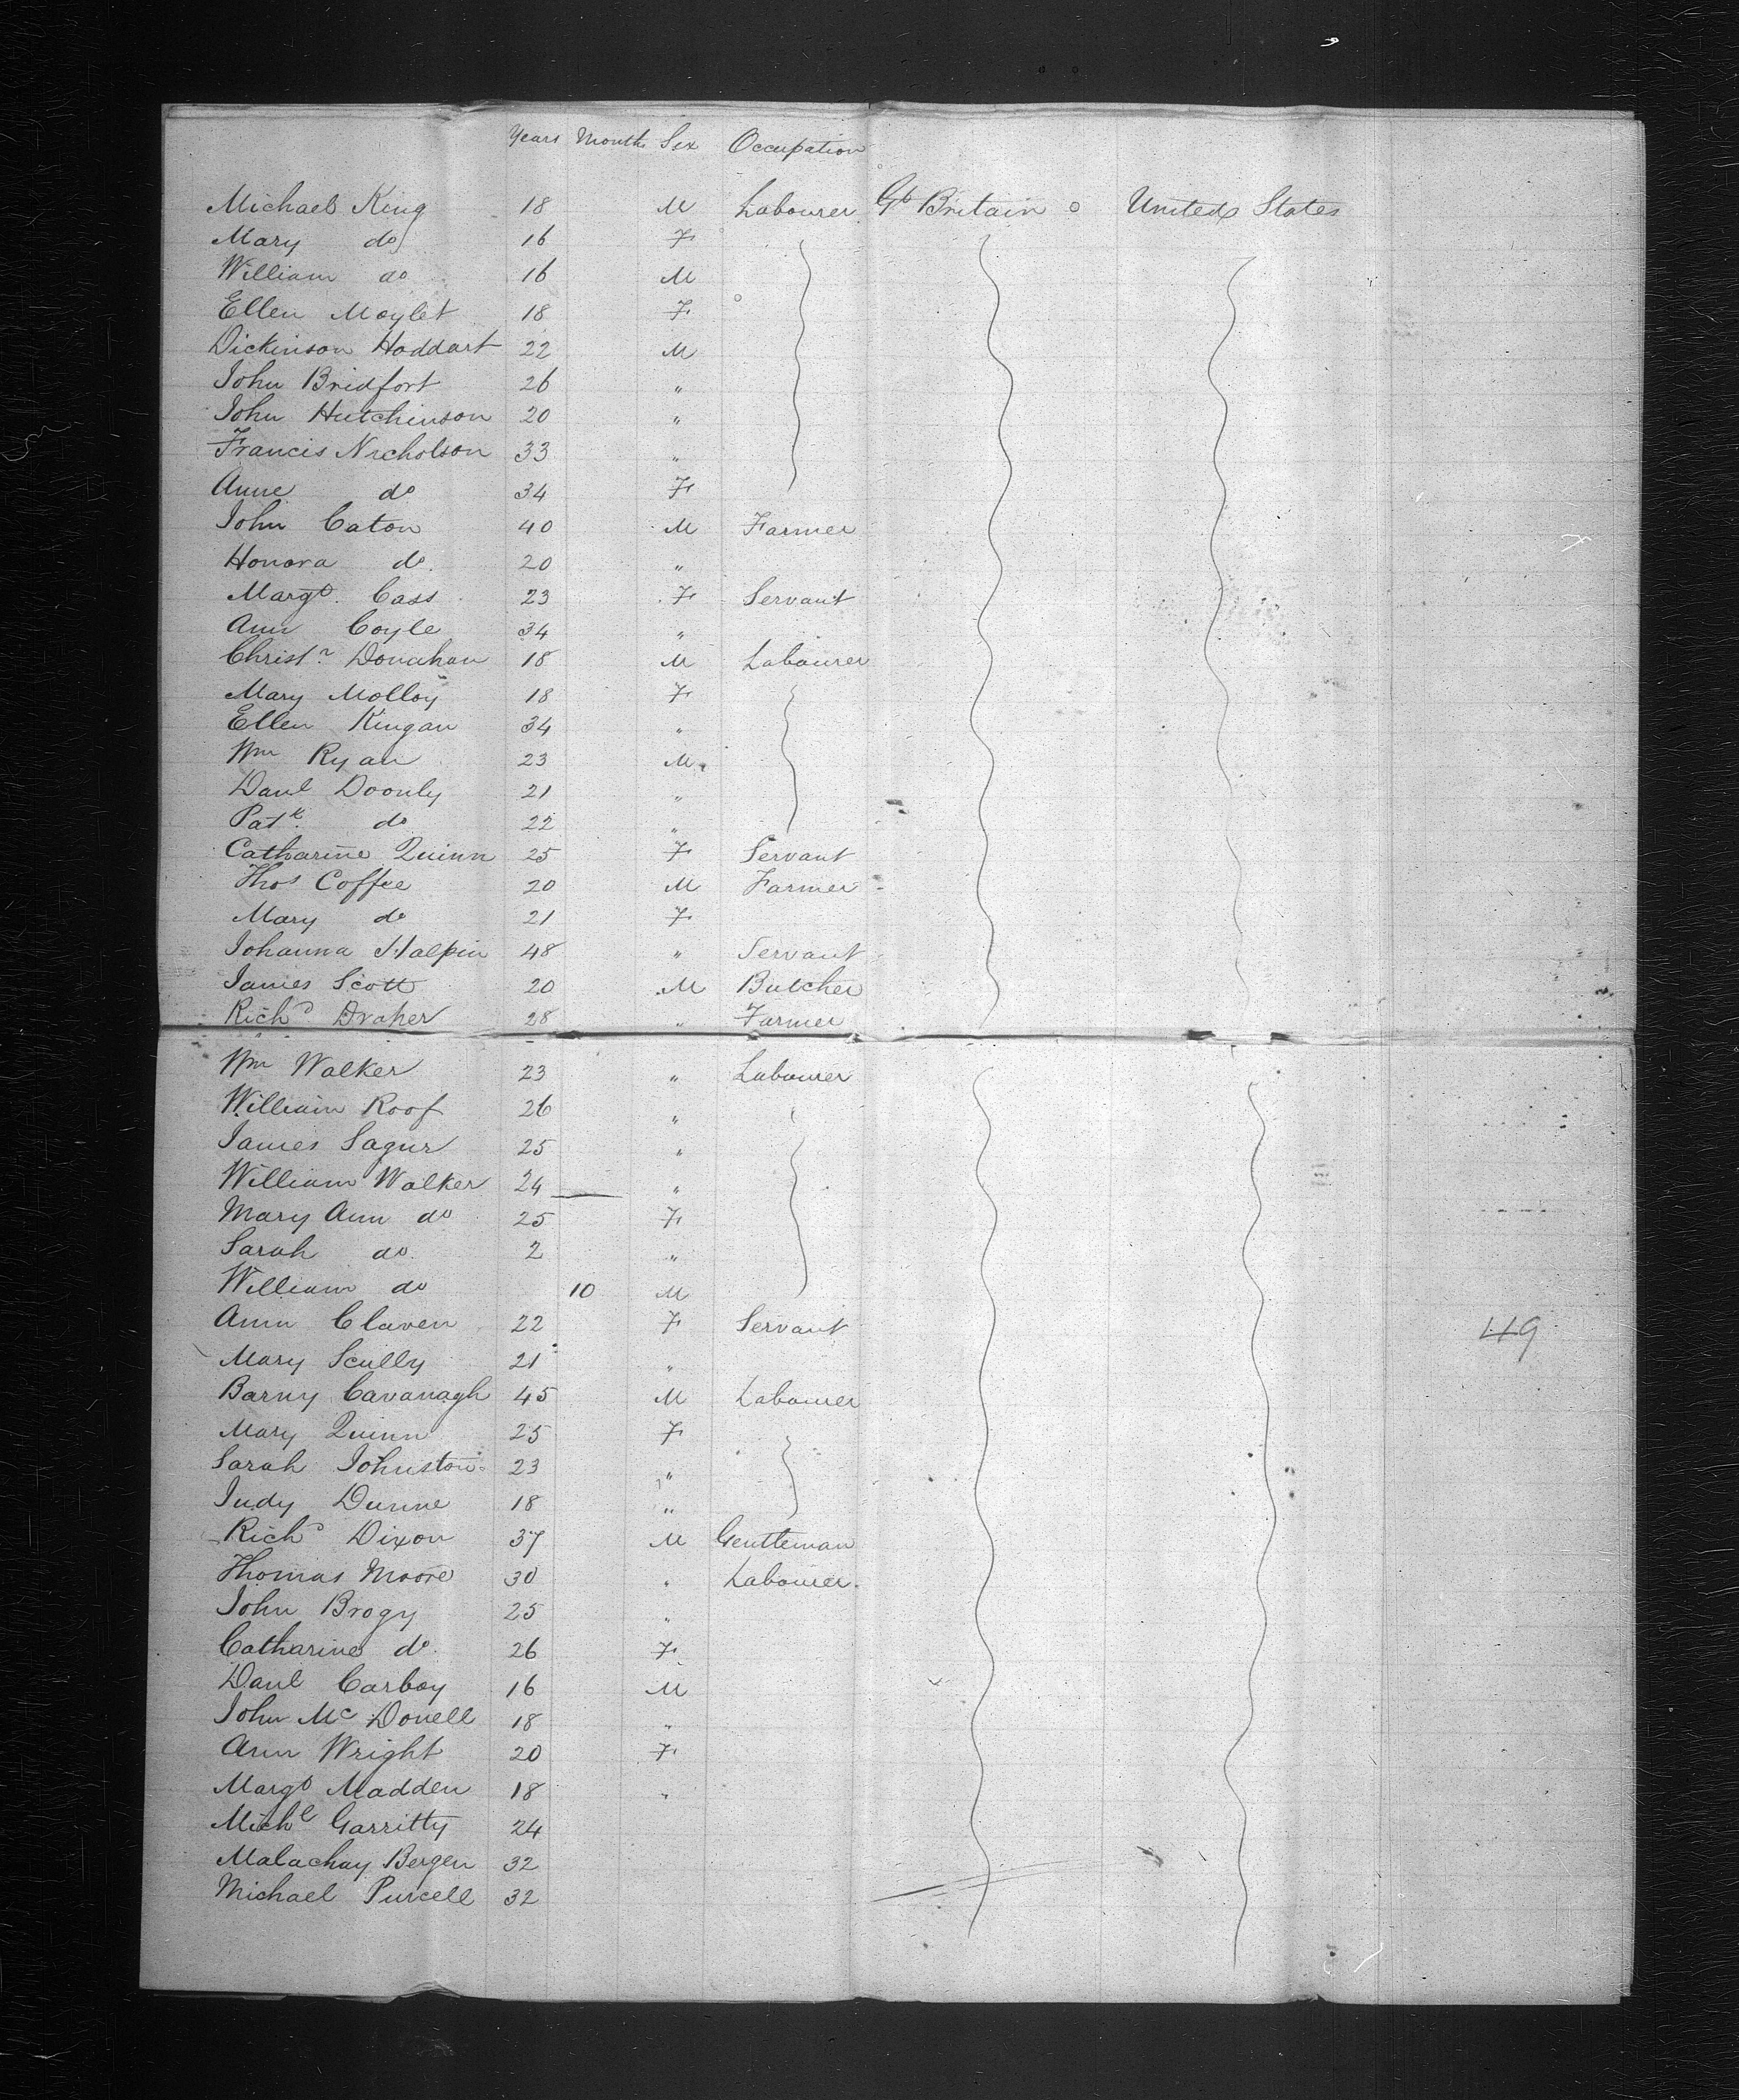 Years Months Sex Occupation
Michael King 18 M Labourer Gt Britain United States
Mary do 16 F
William do 16 M
Ellen Moylet 18 F
Dickinson Hoddart 22 M
John Bridfort 26 "
John Hutchinson 20 "
Francis Nicholson 33 "
Anne do 34 F
John Caton 40 M Farmer
Honora do. 20 "
Margt. Cass 23 F Servant
Ann Coyle 34 "
Christr. Donahan 18 M Labourer
Mary Molloy 18 F
Ellen Kingan 34 "
Wm Ryan 23 M
Danl Doonly 21 "
Patk. do 22 "
Catharine Quinn 25 F Servant
Thos Coffee 20 M Farmer
Mary do 21 F
Johanna Halpin 48 " Servant
James Scott 20 M Butcher
Richd Draper 28 " Farmer
Wm Walker 23 " Labourer
William Roof 26 "
James Sagur 25 "
William Walker 24 "
Mary Ann do 25 F
Sarah do. 2 "
William do 10 M
Ann Claven 22 F Servant
Mary Scully 21 "
Barny Cavanagh 45 M Labourer
Mary Quinn 25 F
Sarah Johnston 23 "
Judy Dunne 18 "
Richd Dixon 37 M Gentleman
Thomas Moore 30 " Labourer.
John Brogy 25 "
Catharine do. 26 F
Danl Carboy 16 M
John Mc Donell 18 "
Ann Wright 20 F
Margt Madden 18 "
Michl Garritty 24
Malachay Bergen 32
Michael Purcell 32
49